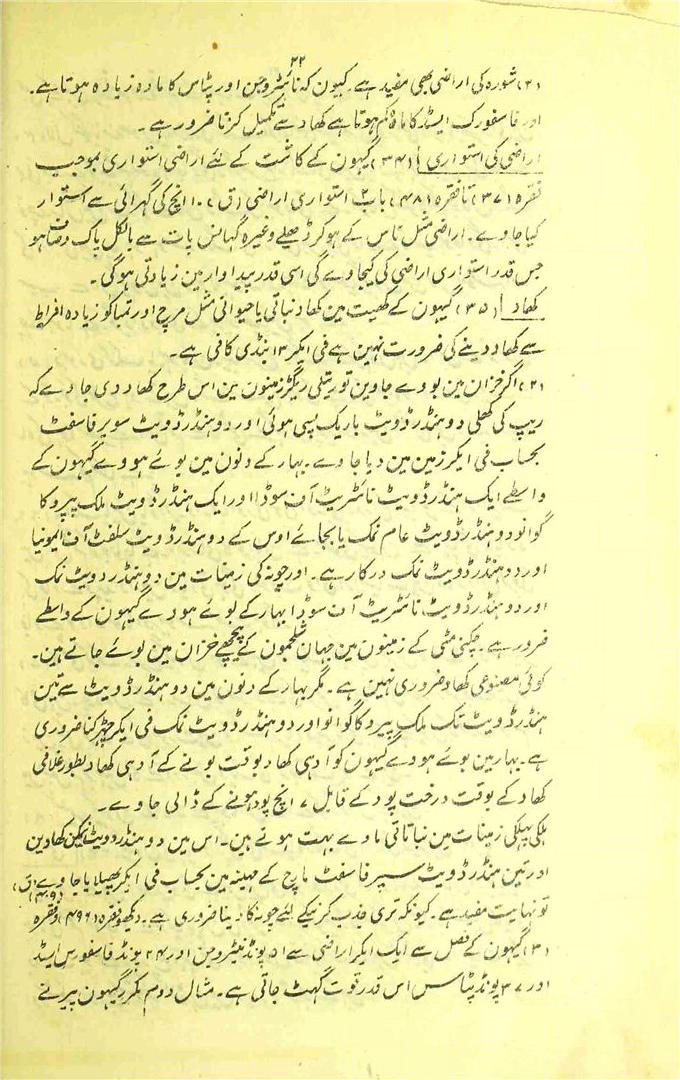 ۲۲
(۲) شورہ کی اراضی بھی مفید ہے۔ کیون کہ نائیٹروجن اور پٹاس کا مادہ زیادہ ہوتا ہے۔
اور فاسفورک ایسڈ کا مادہ کم ہوتا ہے کھاد سے تکمیل کرنا ضرور ہے۔
اراضی کی استواری (۳۴) گیہون کے کاشت کے لئے اراضی استواری بموجب
فقرہ (۳۷) تا فقرہ (۴۸) باب ۲ استواری اراضی (ق) ۱۰ انچ کی گہرائی سے استوار
کیا جاوے۔ اراضی مثل ناس کے ہو کر ڈھیلے وغیرہ گہانس پات سے بالکل پاک و صاف ہو
جس قدر استواری اراضی کی کیجاوے گی اسی قدر پیداوار مین زیادتی ہوگی۔
کھاد (۳۵) گیہون کے کھیت مین کھاد نباتی یا حیوانی مثل مرچ اور تمباکو زیادہ افراط
سے کھاد دینے کی ضرورت نہین ہے فی ایکر ۱۳ بنڈی کافی ہے۔
(۲) اگر خزان مین بووے جاوین تو ریتلی ریگڑ زمینون مین اس طرح کھاد دی جاوے کہ
ریپ کی کھلی دو ہنڈرڈ ویٹ باریک پسی ہوئی اور دو ہنڈرڈ ویٹ سوپر فاسفٹ
بحساب فی ایکر زمین مین دیا جاوے۔ بہار کے دنون مین بوئے ہووے گیہون کے
واسطے ایک ہنڈرڈ ویٹ نائٹریٹ آف سوڈا اور ایک ہنڈرڈ ویٹ ملک پیرو کا
گوانو دو ہنڈرڈ ویٹ عام نمک یا بجائے اوس کے دو ہنڈرڈ ویٹ سلفٹ آف ایمونیا
اور دو ہنڈرڈ ویٹ نمک درکار ہے۔ اور چونہ کی زمینات مین دو ہنڈرڈ ویٹ نمک
اور دو ہنڈرڈ ویٹ نائٹریٹ آف سوڈا بہار کے بوئے ہووے گیہون کے واسطے
ضرور ہے۔ چکنی مٹی کے زمینون مین جہان شلجمون کے پیچھے خزان مین بوئے جاتے ہین۔
کوئی مصنوعی کھاد ضروری نہین ہے۔ مگر بہار کے دنون مین دو ہنڈرڈ ویٹ سے تین
ہنڈرڈ ویٹ تک ملک پیرو کا گوانو اور دو ہنڈرڈ ویٹ نمک فی ایکر چھڑکنا ضروری
ہے۔ بہار مین بوئے ہووے گیہون کو آدہی کھاد بوقت بونے کے آدہی کھاد بطور غلافی
کھاد کے بوقت درخت پود کے قابل ۷ انچ پود ہونے کے ڈالی جاوے۔
ہلکی پہلکی زمینات مین نباتاتی مادے بہت ہوتے ہین۔ اس مین دو ہنڈرڈ ویٹ کھاد مین
اور تین ہنڈرڈ ویٹ سپر فاسفٹ مارچ کے مہینہ مین بحساب فی ایکر پھیلایا جاوے (ق)
تو نہایت مفید ہے۔ کیونکہ تری جذب کرنیکے لئے چونہ کا دینا ضروری ہے۔ دکھو فقرہ (۴۹۶) و فقرہ
(۳) گیہون کے فصل سے ایک ایکر اراضی سے ۵۱ پونڈ نیٹروجن اور ۲۴ پونڈ فاسفورس ایسڈ
اور ۳۷ پونڈ پٹاسس اس قدر قوت گہٹ جاتی ہے۔ مثال دوم مکرر گیہون پیرنے